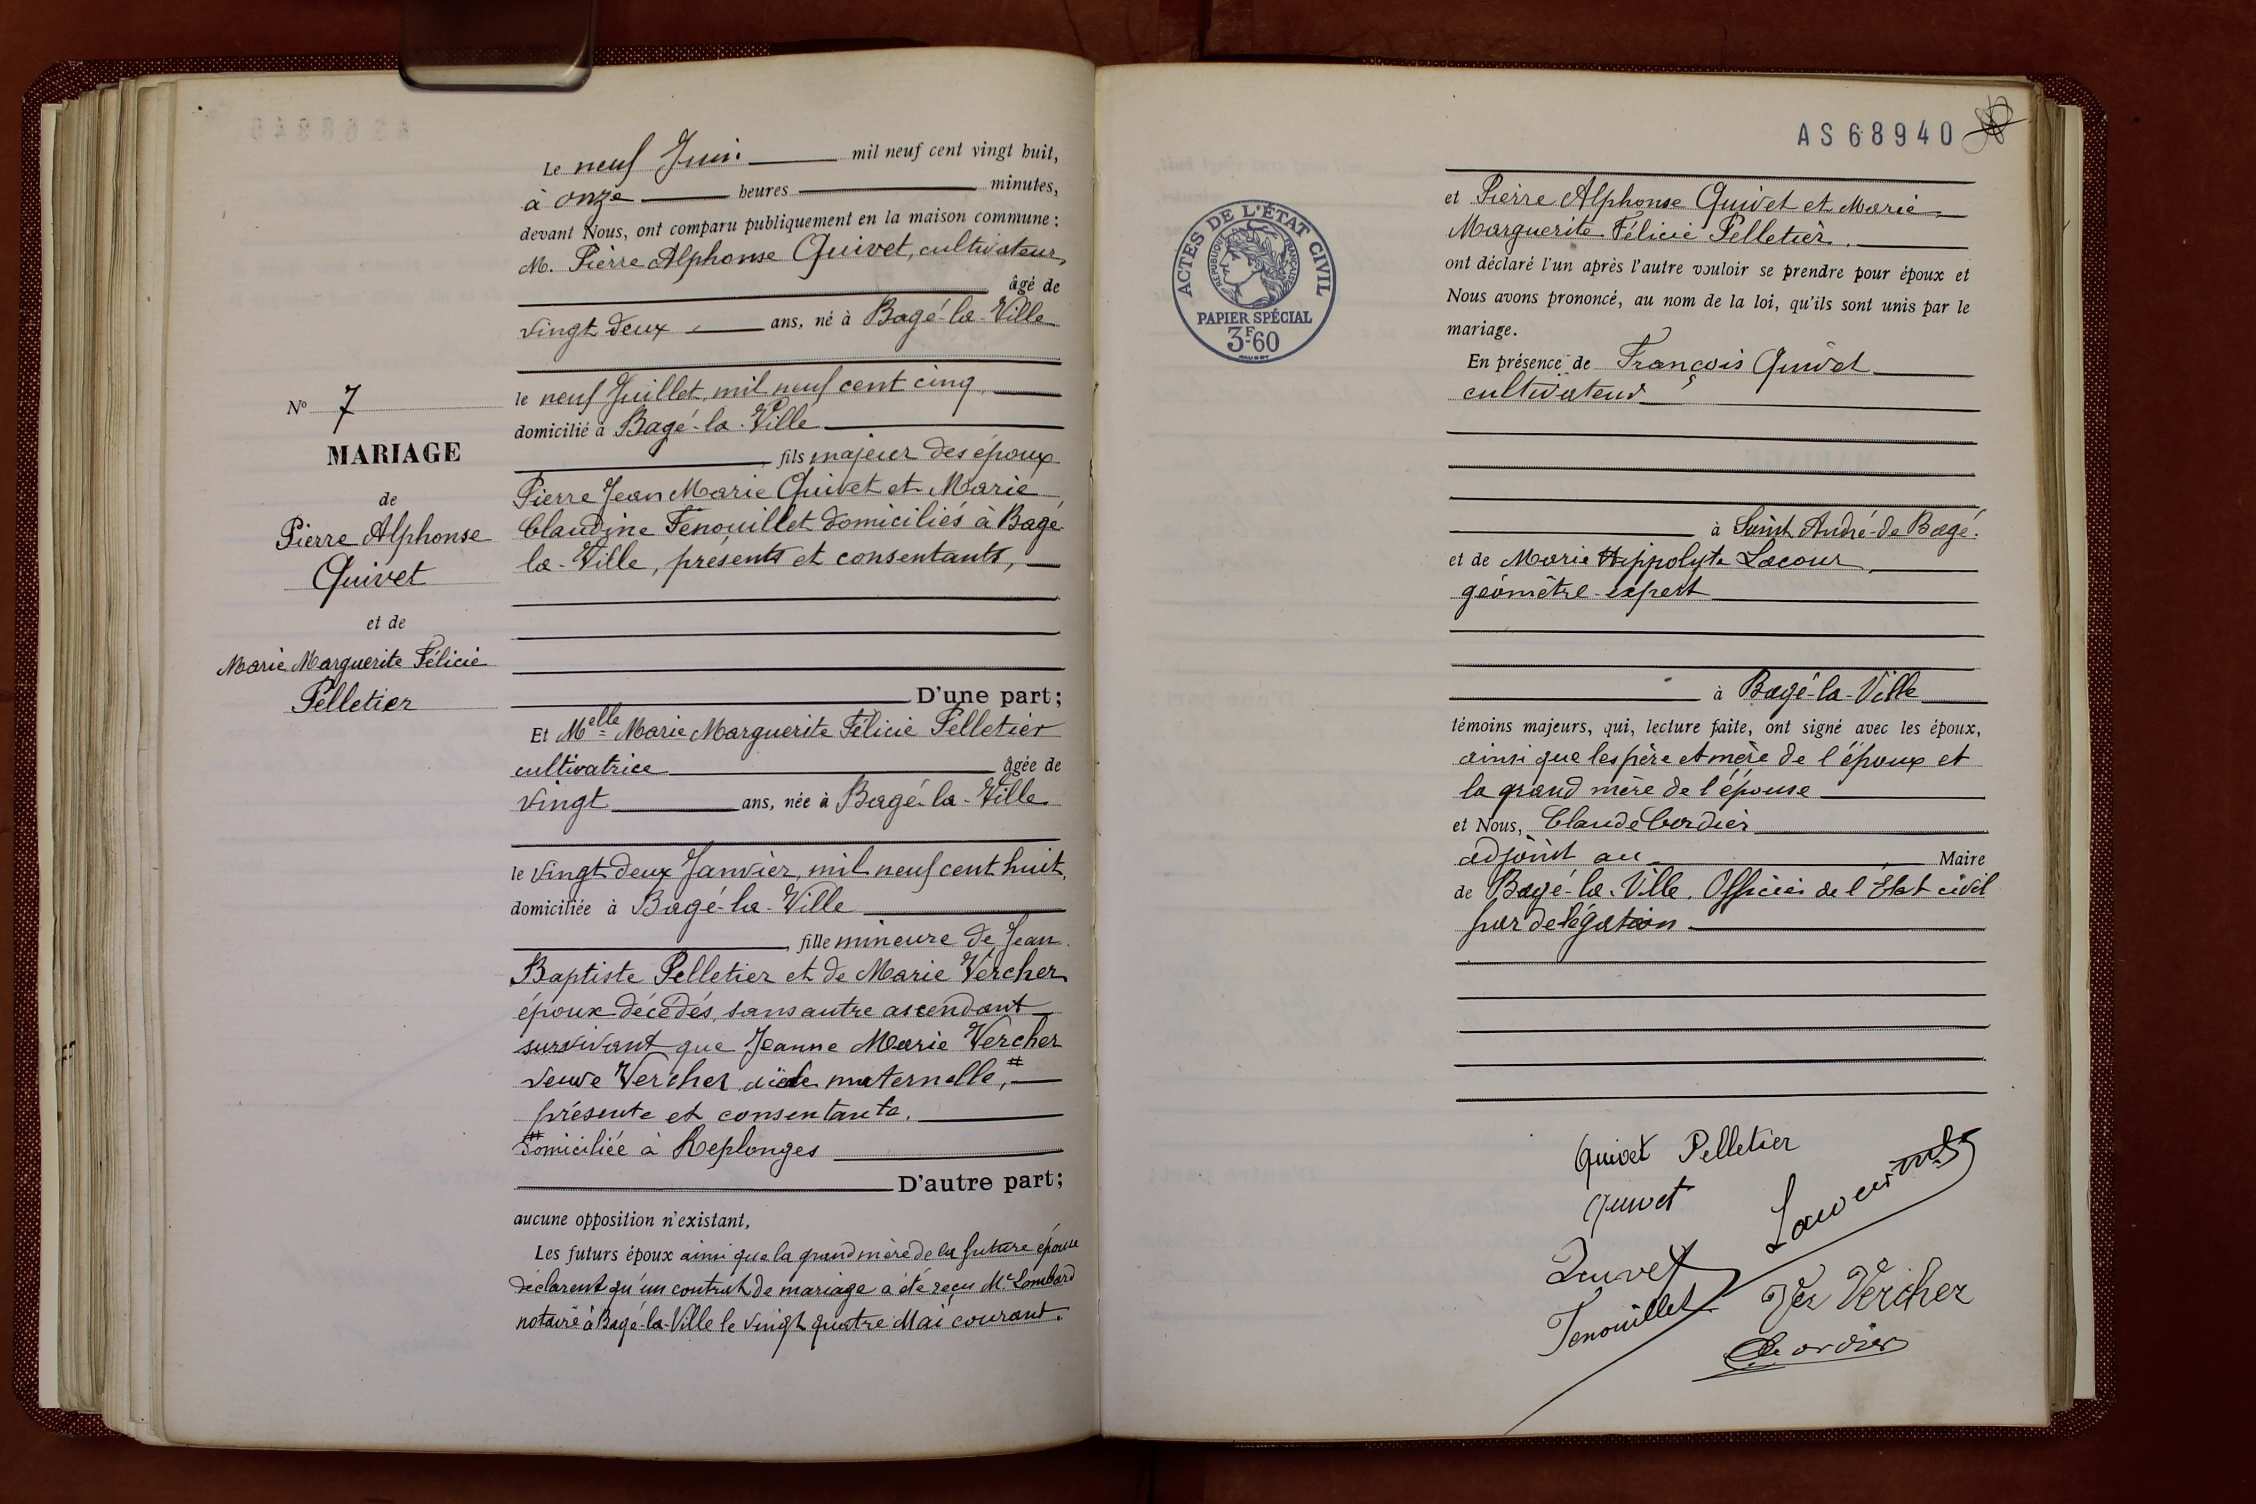 Nº 7
MARIAGE
de
Pierre Alphonse
Quivet
et de
Marie Marguerite Félicie
Pelletier
Le neuf Juin mil neuf cent vingt huit,
à onze heures minutes,
devant Nous, ont comparu publiquement en la maison commune :
M. Pierre Alphonse Quivet, cultivateur,
âgé de
vingt deux ans, né à Bagé-la-Ville
le neuf Juillet, mil neuf cent cinq,
domicilié à Bagé-la-Ville
fils majeur des époux
Pierre Jean Marie Quivet et Marie
Claudine Fenouillet domiciliés à Bagé
la-Ville, présents et consentants,
D'une part ;
Et Melle Marie Marguerite Félicie Pelletier
cultivatrice âgée de
vingt ans, née à Bagé-la-Ville
le vingt deux Janvier, mil neuf cent huit,
domiciliée à Bagé-la-Ville
fille mineure de Jean
Baptiste Pelletier et de Marie Vercher
époux décédés, sans autre ascendant
survivant que Jeanne Marie Vercher
veuve Vercher aïeule maternelle, #
présente et consentante.
# domiciliée à Replonges
D'autre part ;
aucune opposition n'existant,
Les futurs époux ainsi que la grand mère de la future épouse
déclarent qu'un contrat de mariage a été reçu Me Lombard
notaire à Bagé-la-Ville le vingt quatre Mai courant.
AS68940
ACTES DE L'ÉTAT CIVIL
RÉPUBLIQUE FRANÇAISE
PAPIER SPÉCIAL
3F60
et Pierre Alphonse Quivet et Marie
Marguerite Félicie Pelletier.
ont déclaré l'un après l'autre vouloir se prendre pour époux et
Nous avons prononcé, au nom de la loi, qu'ils sont unis par le
mariage.
En présence de François Quivet
cultivateur
à Saint André-de Bagé.
et de Marie Hippolyte Lacour
géomètre-expert
à Bagé-la-Ville
témoins majeurs, qui, lecture faite, ont signé avec les époux,
ainsi que les père et mère de l'époux et
la grand mère de l'épouse
et Nous, Claude Cordier
adjoint au Maire
de Bagé-la-Ville. Officier de l'État civil
par délégation
Quivet Pelletier
Quivet
Lacour
Quivet
Fenouillet Vve Vercher
Cordier